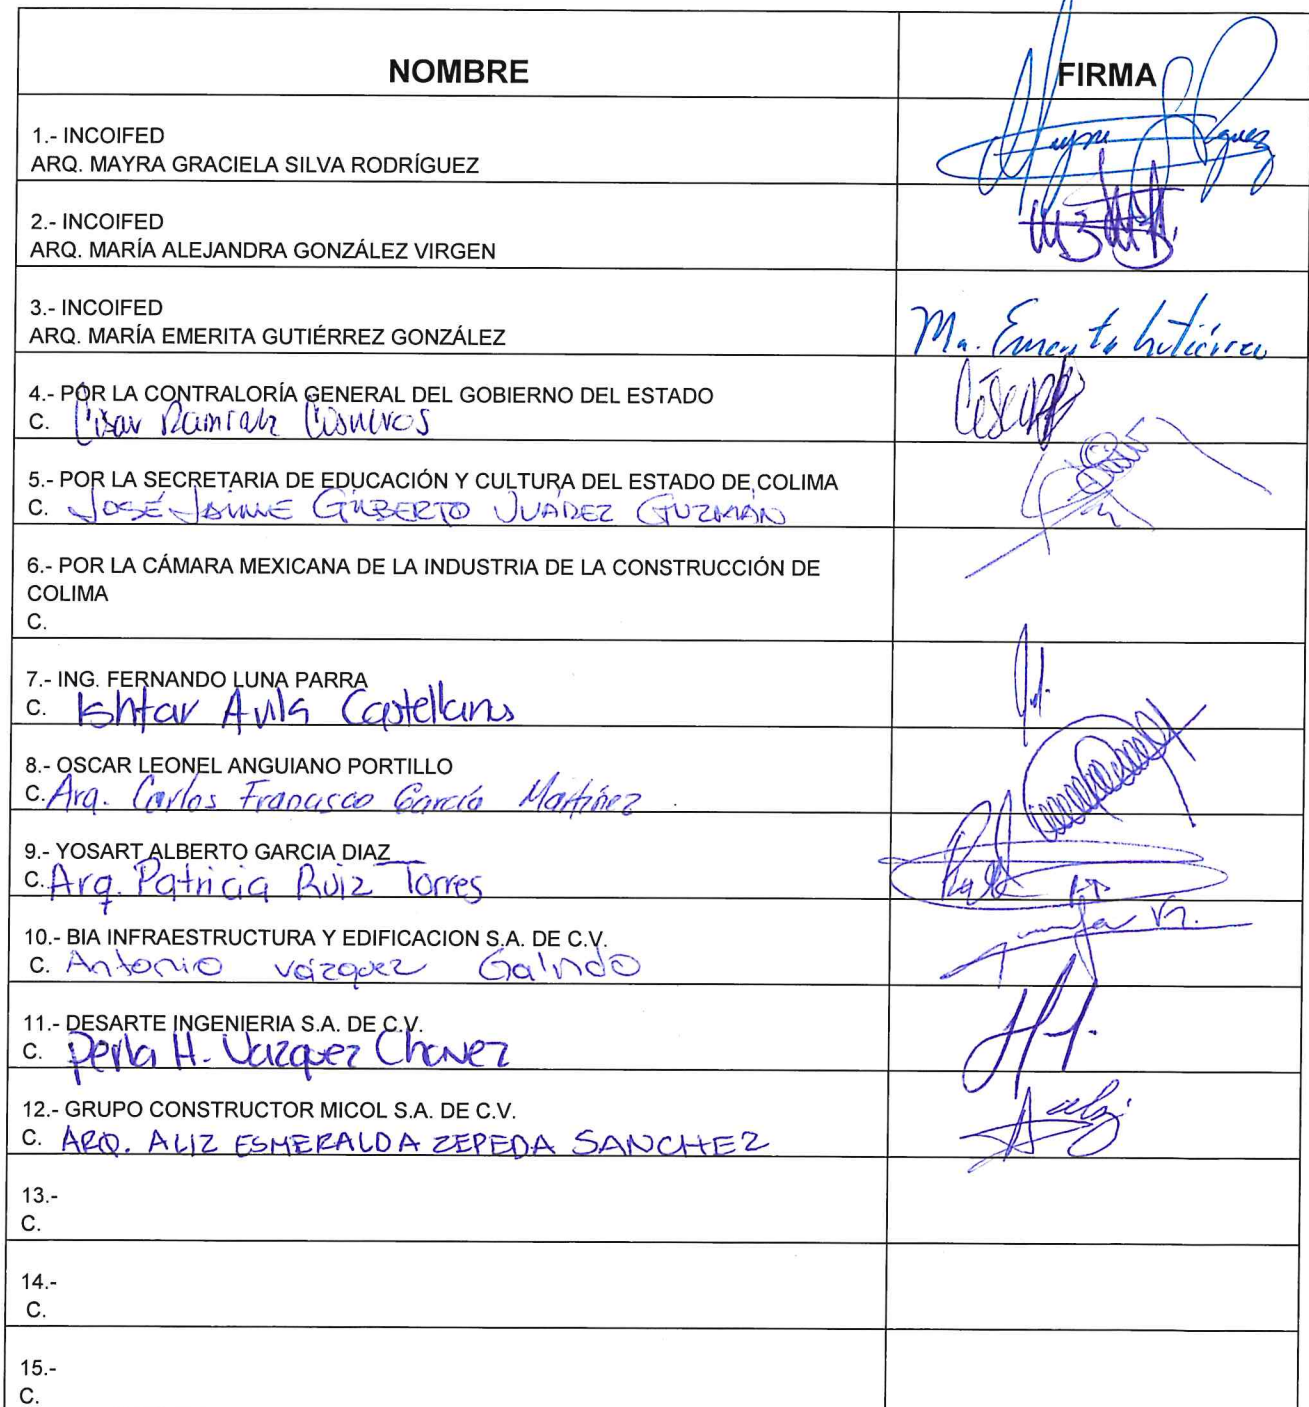 NOMBRE
FIRMA
1.- INCOIFED
ARQ. MAYRA GRACIELA SILVA RODRÍGUEZ
2.- INCOIFED
ARQ. MARÍA ALEJANDRA GONZÁLEZ VIRGEN
3.- INCOIFED
ARQ. MARÍA EMERITA GUTIÉRREZ GONZÁLEZ
Ma. Emerita Gutiérrez
4.- POR LA CONTRALORÍA GENERAL DEL GOBIERNO DEL ESTADO
C. César Ramírez Cisneros
5.- POR LA SECRETARIA DE EDUCACIÓN Y CULTURA DEL ESTADO DE COLIMA
C. JOSÉ JAIME GILBERTO JUÁREZ GUZMÁN
6.- POR LA CÁMARA MEXICANA DE LA INDUSTRIA DE LA CONSTRUCCIÓN DE
COLIMA
C.
7.- ING. FERNANDO LUNA PARRA
C. Ishtar Avila Castellanos
8.- OSCAR LEONEL ANGUIANO PORTILLO
C. Arq. Carlos Francisco García Martínez
9.- YOSART ALBERTO GARCIA DIAZ
C. Arq. Patricia Ruiz Torres
10.- BIA INFRAESTRUCTURA Y EDIFICACION S.A. DE C.V.
C. Antonio vázquez Galindo
11.- DESARTE INGENIERIA S.A. DE C.V.
C. Perla H. Vazquez Chavez
12.- GRUPO CONSTRUCTOR MICOL S.A. DE C.V.
C. ARQ. ALIZ ESMERALDA ZEPEDA SANCHEZ
13.-
C.
14.-
C.
15.-
C.